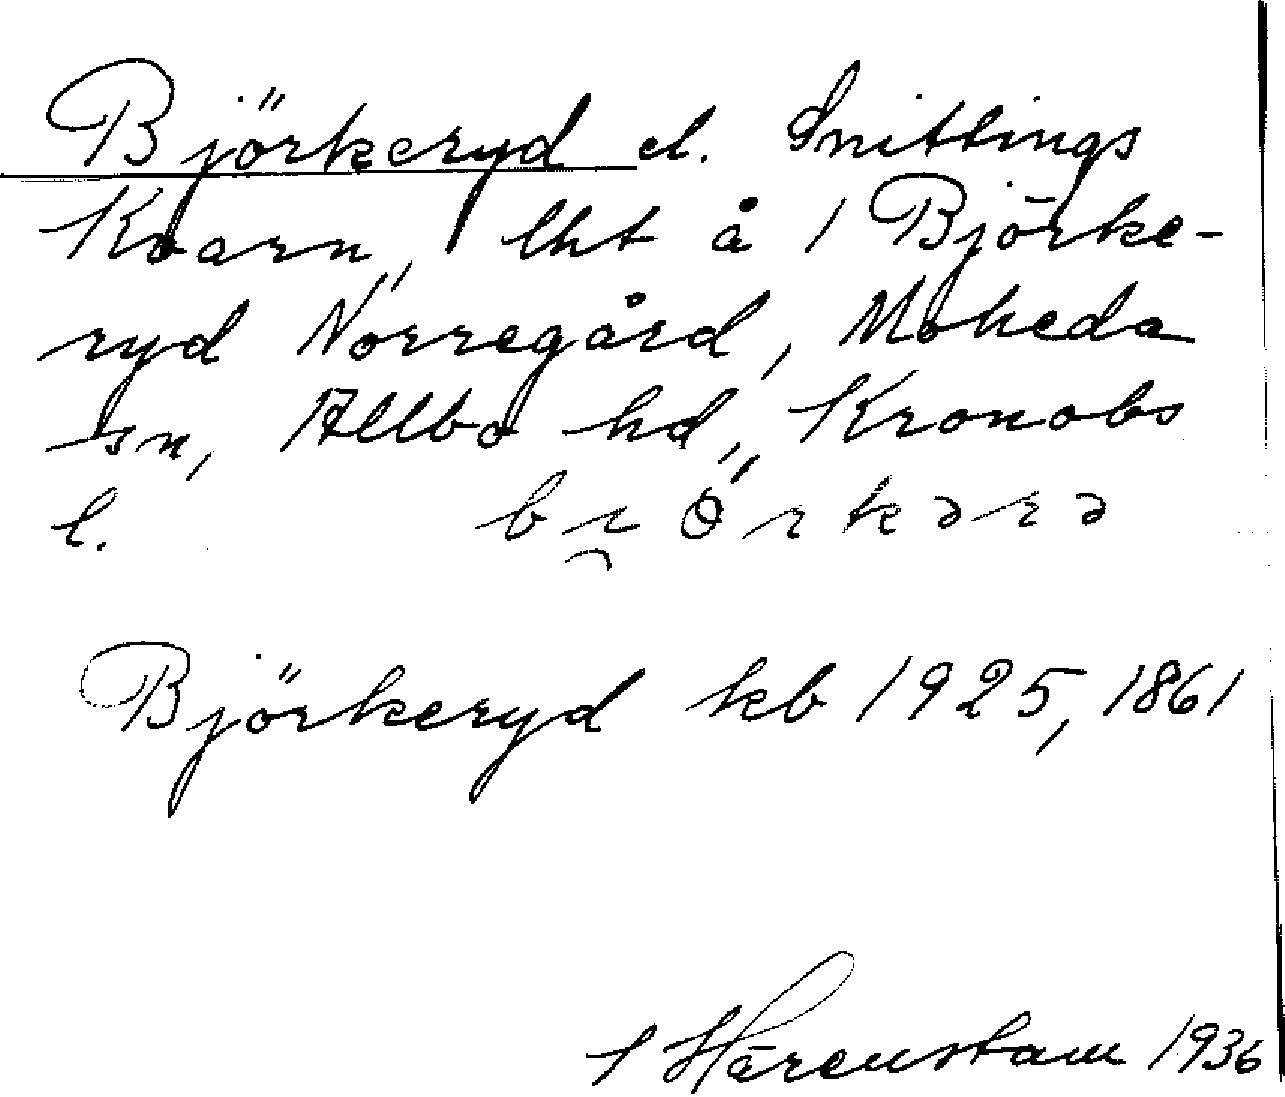 Björkeryd el. Snittings
Kvarn, lht å 1 Björke-
ryd Norregård, Moheda
sn, Allbo hd, Kronobs
l. bi̯örkərə
Björkeryd kb 1925, 1861
Härenstam 1936